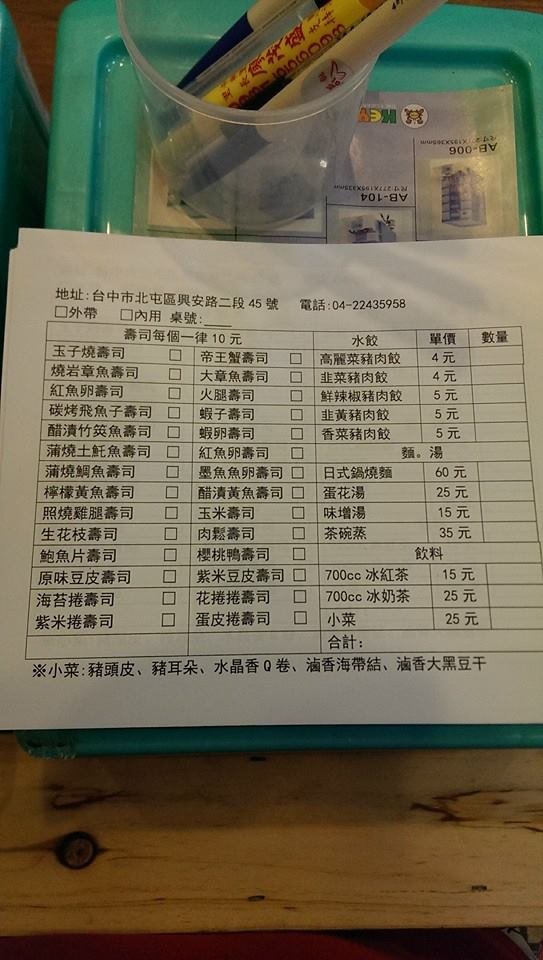 AB-006
尺寸:277X195X365mm
AB-104
尺寸:277X195X335mm
地址:台中市北屯區興安路二段 45 號 電話:04-22435958
□外帶 □內用 桌號:____
壽司每個一律 10 元 水餃 單價 數量
玉子燒壽司 □ 帝王蟹壽司 □ 高麗菜豬肉餃 4 元
燒岩章魚壽司 □ 大章魚壽司 □ 韭菜豬肉餃 4 元
紅魚卵壽司 □ 火腿壽司 □ 鮮辣椒豬肉餃 5 元
碳烤飛魚子壽司 □ 蝦子壽司 □ 韭黃豬肉餃 5 元
醋漬竹筴魚壽司 □ 蝦卵壽司 □ 香菜豬肉餃 5 元
蒲燒土魠魚壽司 □ 紅魚卵壽司 □ 麵。湯
蒲燒鯛魚壽司 □ 墨魚魚卵壽司 □ 日式鍋燒麵 60 元
檸檬黃魚壽司 □ 醋漬黃魚壽司 □ 蛋花湯 25 元
照燒雞腿壽司 □ 玉米壽司 □ 味增湯 15 元
生花枝壽司 □ 肉鬆壽司 □ 茶碗蒸 35 元
鮑魚片壽司 □ 櫻桃鴨壽司 □ 飲料
原味豆皮壽司 □ 紫米豆皮壽司 □ 700cc 冰紅茶 15 元
海苔捲壽司 □ 花捲捲壽司 □ 700cc 冰奶茶 25 元
紫米捲壽司 □ 蛋皮捲壽司 □ 小菜 25 元
合計:
※小菜:豬頭皮、豬耳朵、水晶香 Q 卷、滷香海帶結、滷香大黑豆干